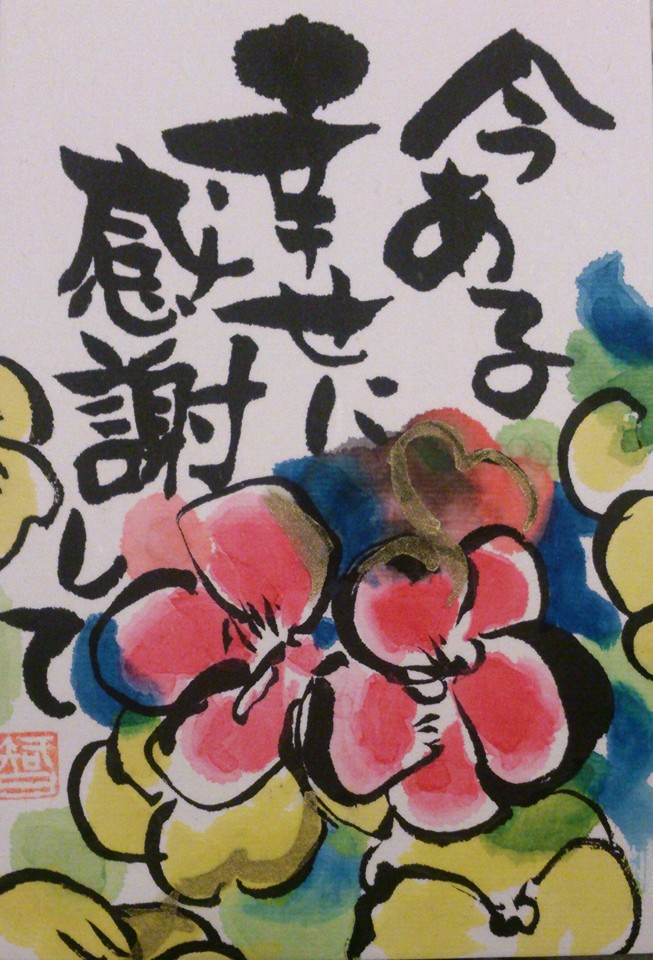 今ある
幸せに
感謝して